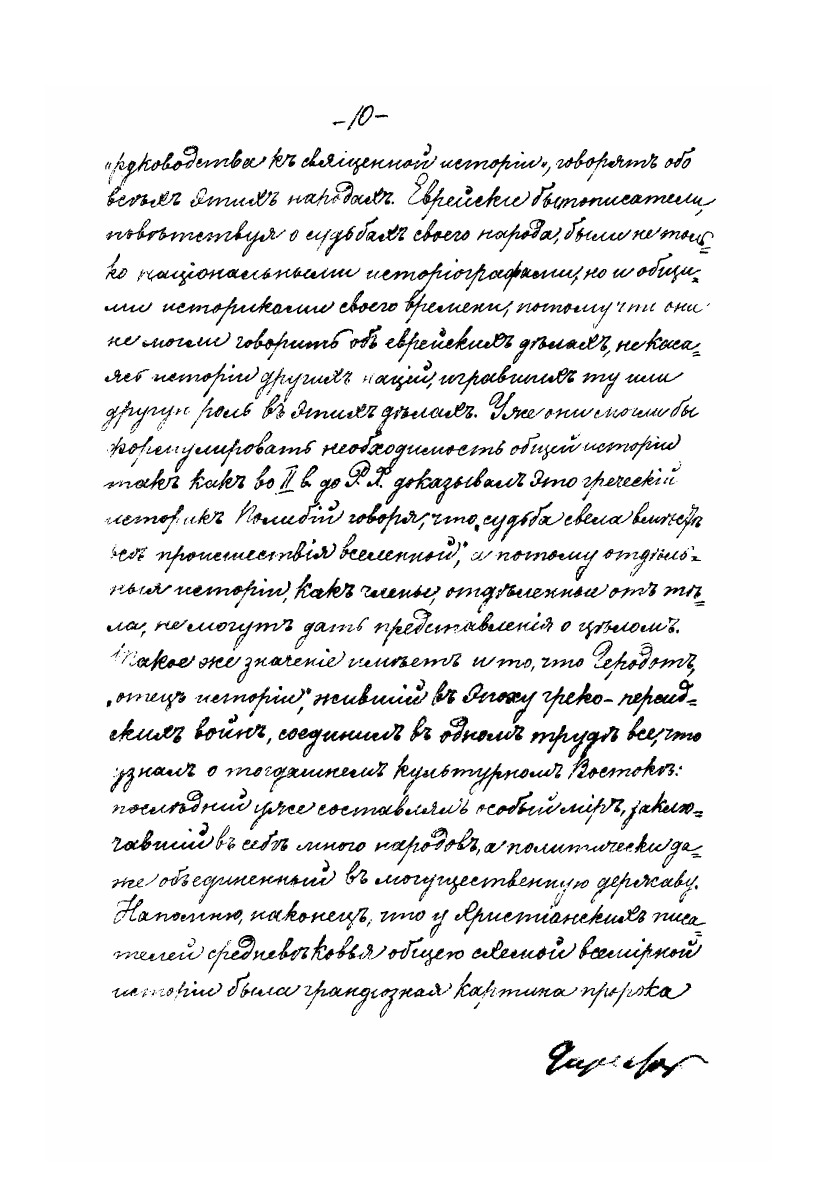 -10-
„руководства къ священной исторіи“, говорятъ обо
всѣхъ этихъ народахъ. Еврейскіе бытописатели,
повѣствуя о судьбахъ своего народа, были не толь=
ко національными исторіографами, но и общи=
ми историками своего времени, потому что они
не могли говорить объ еврейскихъ дѣлахъ, не каса=
ясь исторіи другихъ націй, игравшихъ ту или
другую роль въ этихъ дѣлахъ. Уже они могли бы
формулировать необходимость общей исторіи
такъ какъ во II в. до Р. Х. доказывалъ это греческій
историкъ Полибій говоря, что „судьба свела вмѣстѣ
всѣ происшествія вселенной“, а потому отдѣль=
ныя исторіи, какъ члены, отдѣленные отъ тѣ=
ла, не могутъ дать представленія о цѣломъ.
Такое же значеніе имѣетъ и то, что Геродотъ,
„отецъ исторіи“, жившій въ эпоху греко-персид=
скихъ войнъ, соединилъ въ одномъ трудѣ все, что
узналъ о тогдашнемъ культурномъ Востокѣ:
послѣдній уже составлялъ особый міръ, заклю=
чавшій въ себѣ много народовъ, а политически да=
же объединенный въ могущественную державу.
Напомню, наконецъ, что у христіанскихъ писа=
телей средневѣковья общею схемой всемірной
исторіи была грандіозная картина пророка